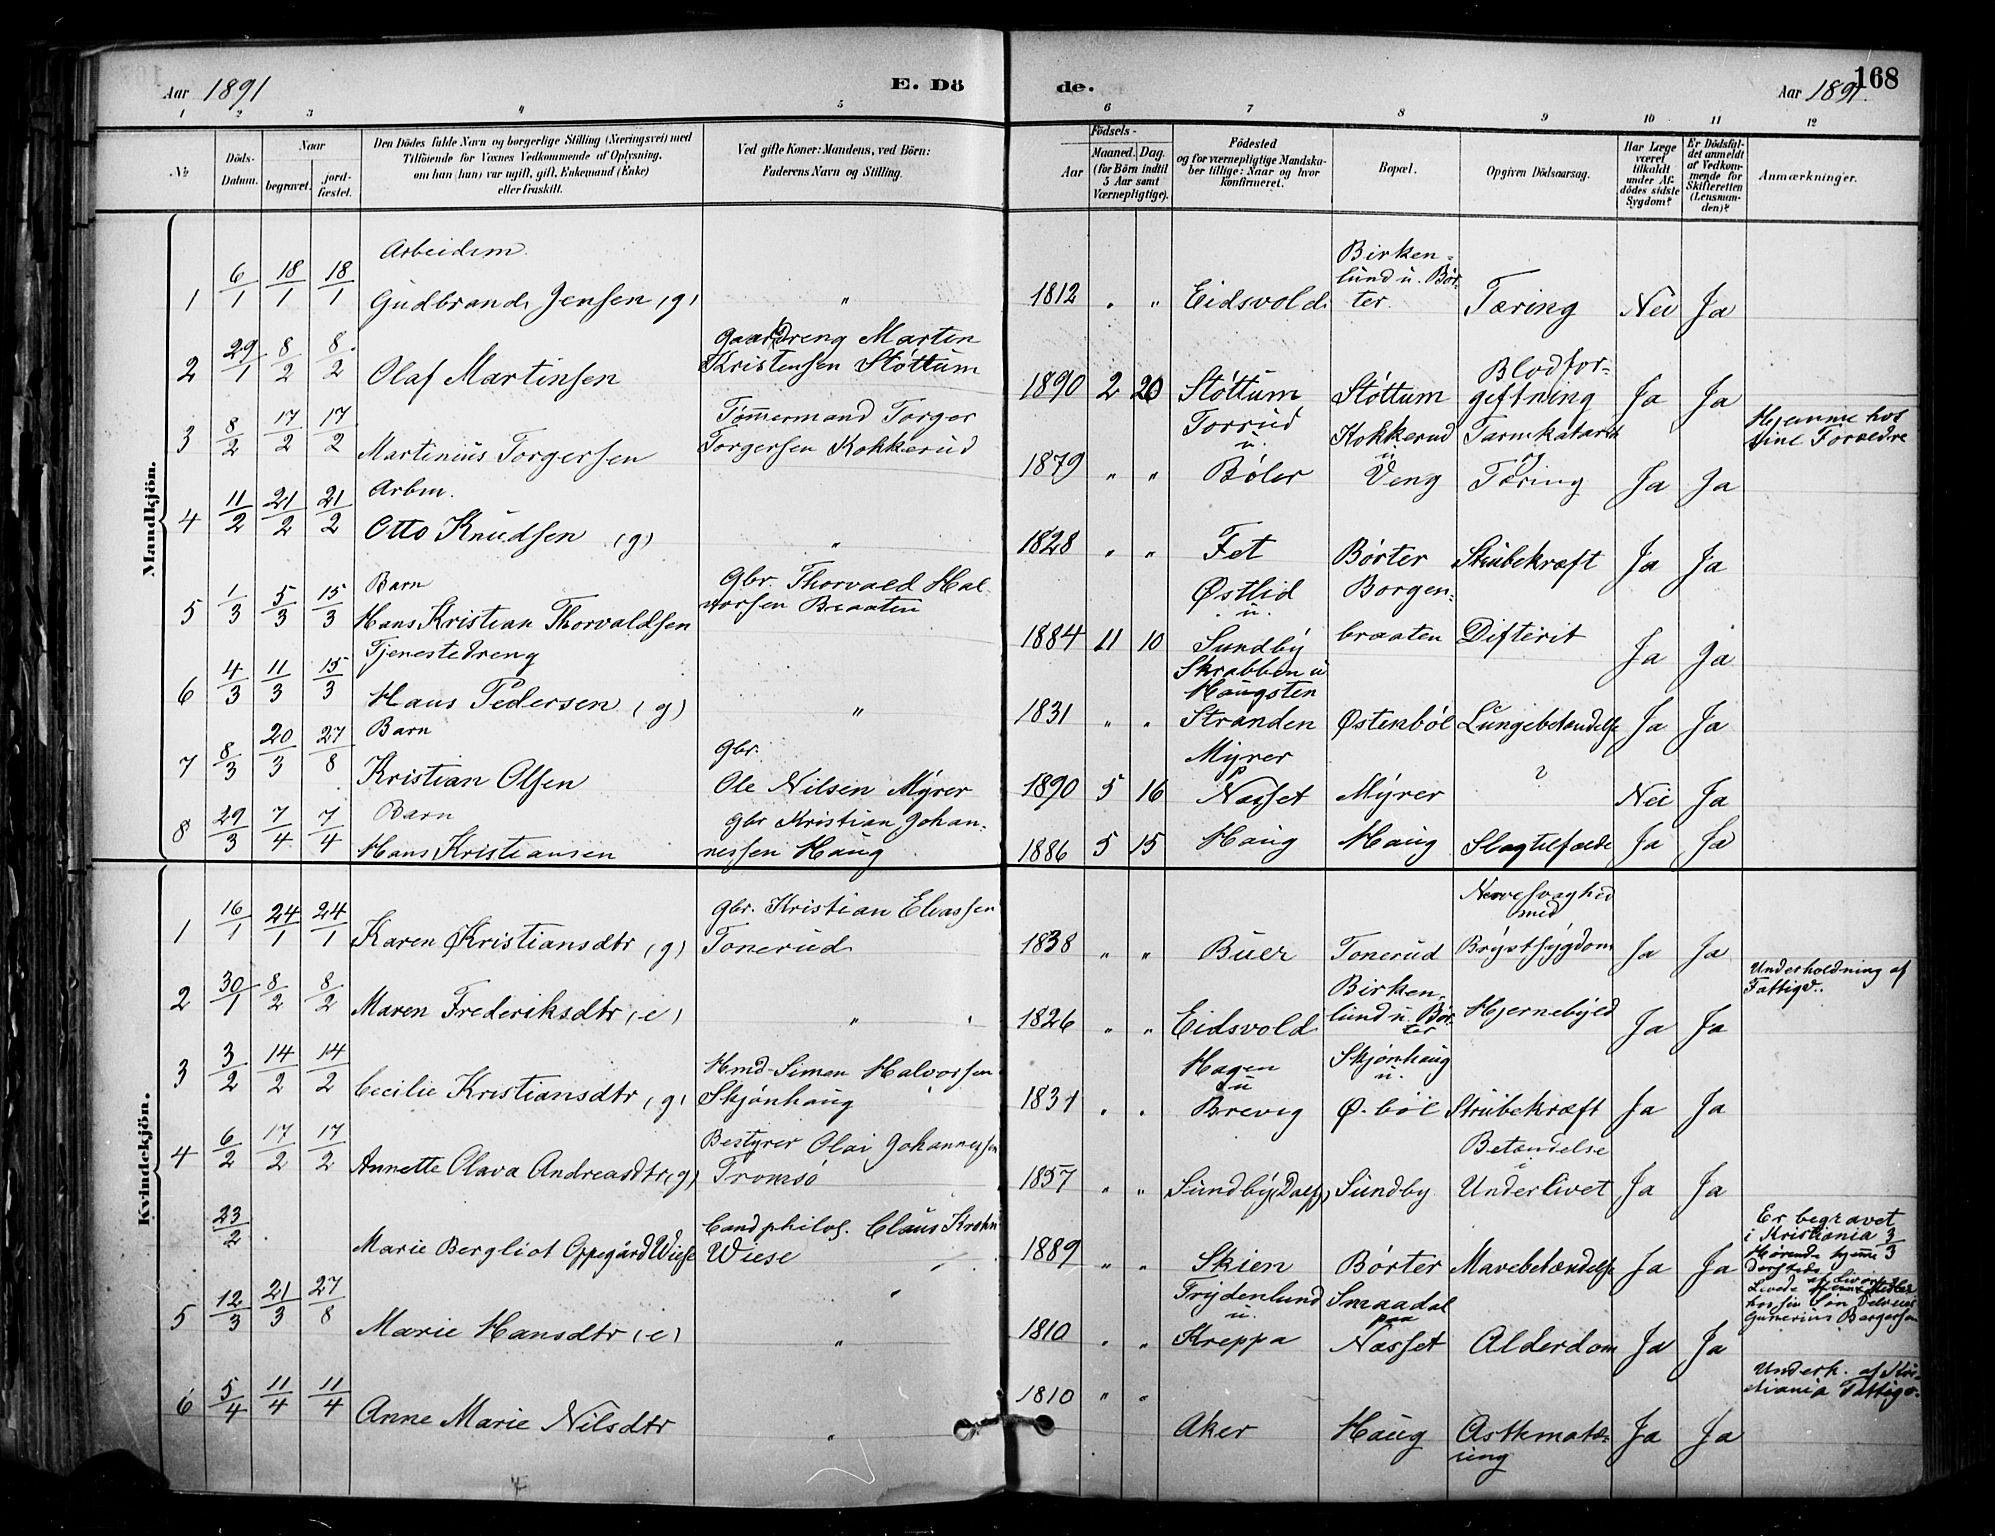 Aar 1891
E. Dö
de.
Aar 1891.
168
1 2 3 4 5 6 7 8 9 10 11 12
№
Döds-Datum.
Naar
begravet.
jord-fæstet.
Den Dödes fulde Navn og borgerlige Stilling (Næringsvei) med
Tilföiende for Voxnes Vedkommende af Oplysning,
om han (hun) var ugift, gift, Enkemand (Enke)
eller fraskilt.
Ved gifte Koner: Mandens, ved Börn:
Faderens Navn og Stilling.
Födsels-
Aar
Maaned. Dag.
(for Börn indtil
5 Aar samt
Værnepligtige).
Födested
og for værnepligtige Mandska-
ber tillige: Naar og hvor
konfirmeret.
Bopæl.
Opgiven Dödsaarsag.
Har Læge
været
tilkaldt
under Af-
dödes sidste
Sygdom?
Er Dödsfal-
det anmeldt
af Vedkom-
mende for
Skifteretten
(Lensman-
den)?
Anmærkninger.
Mandkjön.
Arbeidsm.
1 6/1 18/1 18/1 Gudbrand Jensen (g) " 1812 " " Eidsvold Birken-lund u. Bør-ter. Tæring Nei Ja
2 29/1 8/2 8/2 Olaf Martinsen Gaardsdreng Martin Kristensen Støttum 1890 2 20 Støttum Støttum Blodfor-giftning Ja Ja
3 8/2 17/2 17/2 Martinius Torgersen Tømmermand Torger Torgersen Kokkerud 1879 " " Torrud u. Bøler Kokkerud u Veng Tarmkatarrh og Tæring Ja Ja Hjemme hos sine Forældre
Arbm.
4 11/2 21/2 21/2 Otto Knudsen (g) " 1828 " " Fet Børter Strubekræft Ja Ja
Barn
5 1/3 5/3 15/3 Hans Kristian Thorvaldsen Gbr. Thorvald Hal-vorsen Braaten 1884 11 10 Østlid u. Sundby Borgen-braaten Difterit Ja Ja
Tjenestedreng
6 4/3 11/3 15/3 Hans Pedersen (g) " 1831 " " Skrabben u Haugsten Stranden Østenbøl Lungebetændelse Ja Ja
Barn
7 8/3 20/3 27/8 Kristian Olsen Gbr. Ole Nilsen Myrer 1890 5 16 Myrer p Næsset Myrer ? Nei Ja
Barn
8 29/3 7/4 7/4 Hans Kristiansen Gbr Kristian Johan-nessen Haug 1886 5 15 Haug Haug Slagtilfælde Ja Ja
Kvindekjön.
1 16/1 24/1 24/1 Karen Kristiansdtr (g) Gbr. Kristian Eliassen Tonerud 1838 " " Buer Tonerud Nervesvaghed med Brystsygdom Ja Ja
2 30/1 8/2 8/2 Maren Frederiksdtr (e) " 1826 " " Eidsvold Birken-lund u. Bør-ter Hjernebyld Ja Ja Underholdning af Fattigv.
3 3/2 14/2 14/2 Cecilie Kristiansdtr (g) Hmd. Simen Halvorsen Skjønhaug 1831 " " Hagen u Brevig Skjønhaug u. Ø. bøl Strubekræft Ja Ja
4 6/2 17/2 17/2 Annette Olava Andreasdtr (g) Bestyrer Olai Johannessen Tromsø 1857 " " Sundby Sundby Betændelse i Underlivet Ja Ja
23/2 Marie Bergliot Oppegård Wiese Cand philos. Claus Krohn Wiese 1889 " " Skien Børter Mavebetændelse Ja Ja Er begravet i Kristiania 3/3 Hørende hjemme dersteds
5 12/3 21/3 27/8 Marie Hansdtr (e) " 1810 " " Frydenlund u. Kreppa Smaadal paa Næsset Alderdom Ja Ja Levede hos sin Søn
6 5/4 11/4 11/4 Anne Marie Nilsdtr " 1810 " " Aker Haug Asthmatæ-ring Ja Ja Underh. af Kri-stiania Fattigv.